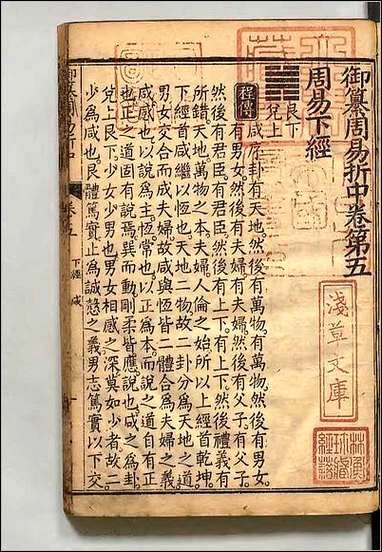 御纂周易折中卷第五
周易下經
艮下
兌上
程傳
咸序卦有天地然後有萬物有萬物然後有男女
有男女然後有夫婦有夫婦然後有父子有父子
然後有君臣有君臣然後有上下有上下然後禮義有
所錯天地萬物之本夫婦人倫之始所以上經首乾坤
下經首咸繼以恆也天地二物故二卦分為天地之道
男女交合而成夫婦故咸與恆皆二體合為夫婦之義
咸感也以說為主恆常也以正為本而說之道自有正
也正之道固有說焉巽而動剛柔皆應說也咸之為卦
兌上艮下少女少男也男女相感之深莫如少者故二
少為咸也艮體篤實止為誠慤之義男志篤實以下交
御纂周易折中
卷五
下經 咸
一
淺草文庫